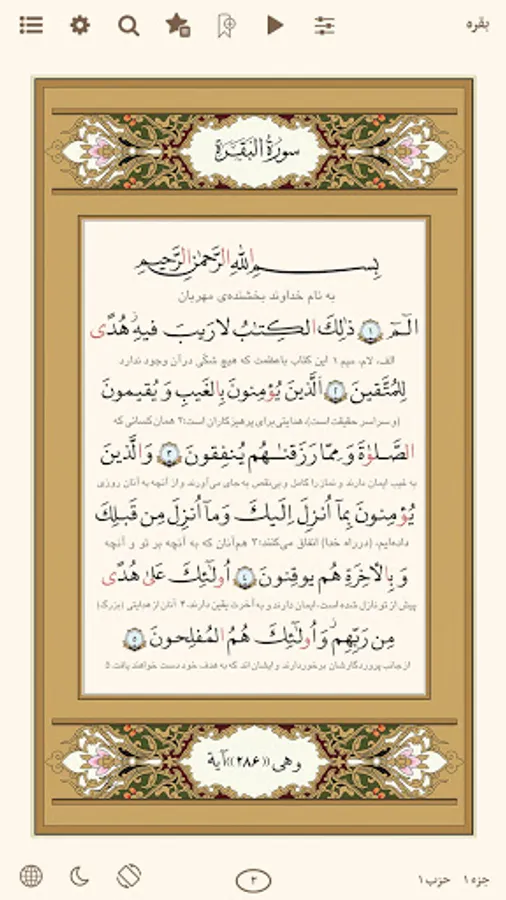 بقره
سورة البقرة
بِسمِ اللهِ الرَّحمٰنِ الرَّحیمِ
به نام خداوند بخشنده‌ی مهربان
الٓـمٓ ۱ ذٰلِكَ الكِتٰبُ لا رَیبَ فیهِ هُدًی
الف، لام، میم ۱ این کتاب باعظمت که هیچ شکّی در آن وجود ندارد
لِلمُتَّقینَ ۲ اَلَّذینَ یُؤمِنونَ بِالغَیبِ وَ یُقیمونَ
(و سراسر حقیقت است)، هدایتی برای پرهیزکاران است؛۲ همان کسانی که
الصَّلوٰةَ وَ مِمّا رَزَقنٰـهُم یُنفِقونَ ۳ وَ الَّذینَ
به غیب ایمان دارند و نماز را کامل و بی‌نقص به جای می‌آورند و از آنچه به آنان روزی
یُؤمِنونَ بِمآ اُنزِلَ اِلَیكَ وَ مآ اُنزِلَ مِن قَبلِكَ
داده‌ایم، (در راه خدا) انفاق می‌کنند؛۳ هم‌آنان که به آنچه بر تو و آنچه
وَ بِالاٰخِرَةِ هُم یوقِنونَ ۴ اُولٰٓئِكَ عَلیٰ هُدًی
پیش از تو نازل شده است، ایمان دارند و به آخرت یقین دارند.۴ آنان از هدایتی (بزرگ)
مِن رَبِّهِم وَ اُولٰٓئِكَ هُمُ المُفلِحونَ ۵
از جانب پروردگارشان برخوردارند و ایشان‌اند که به هدف خود دست خواهند یافت.۵
وهی ((۲۸۶)) آیة
جزء۱ حزب۱
۲